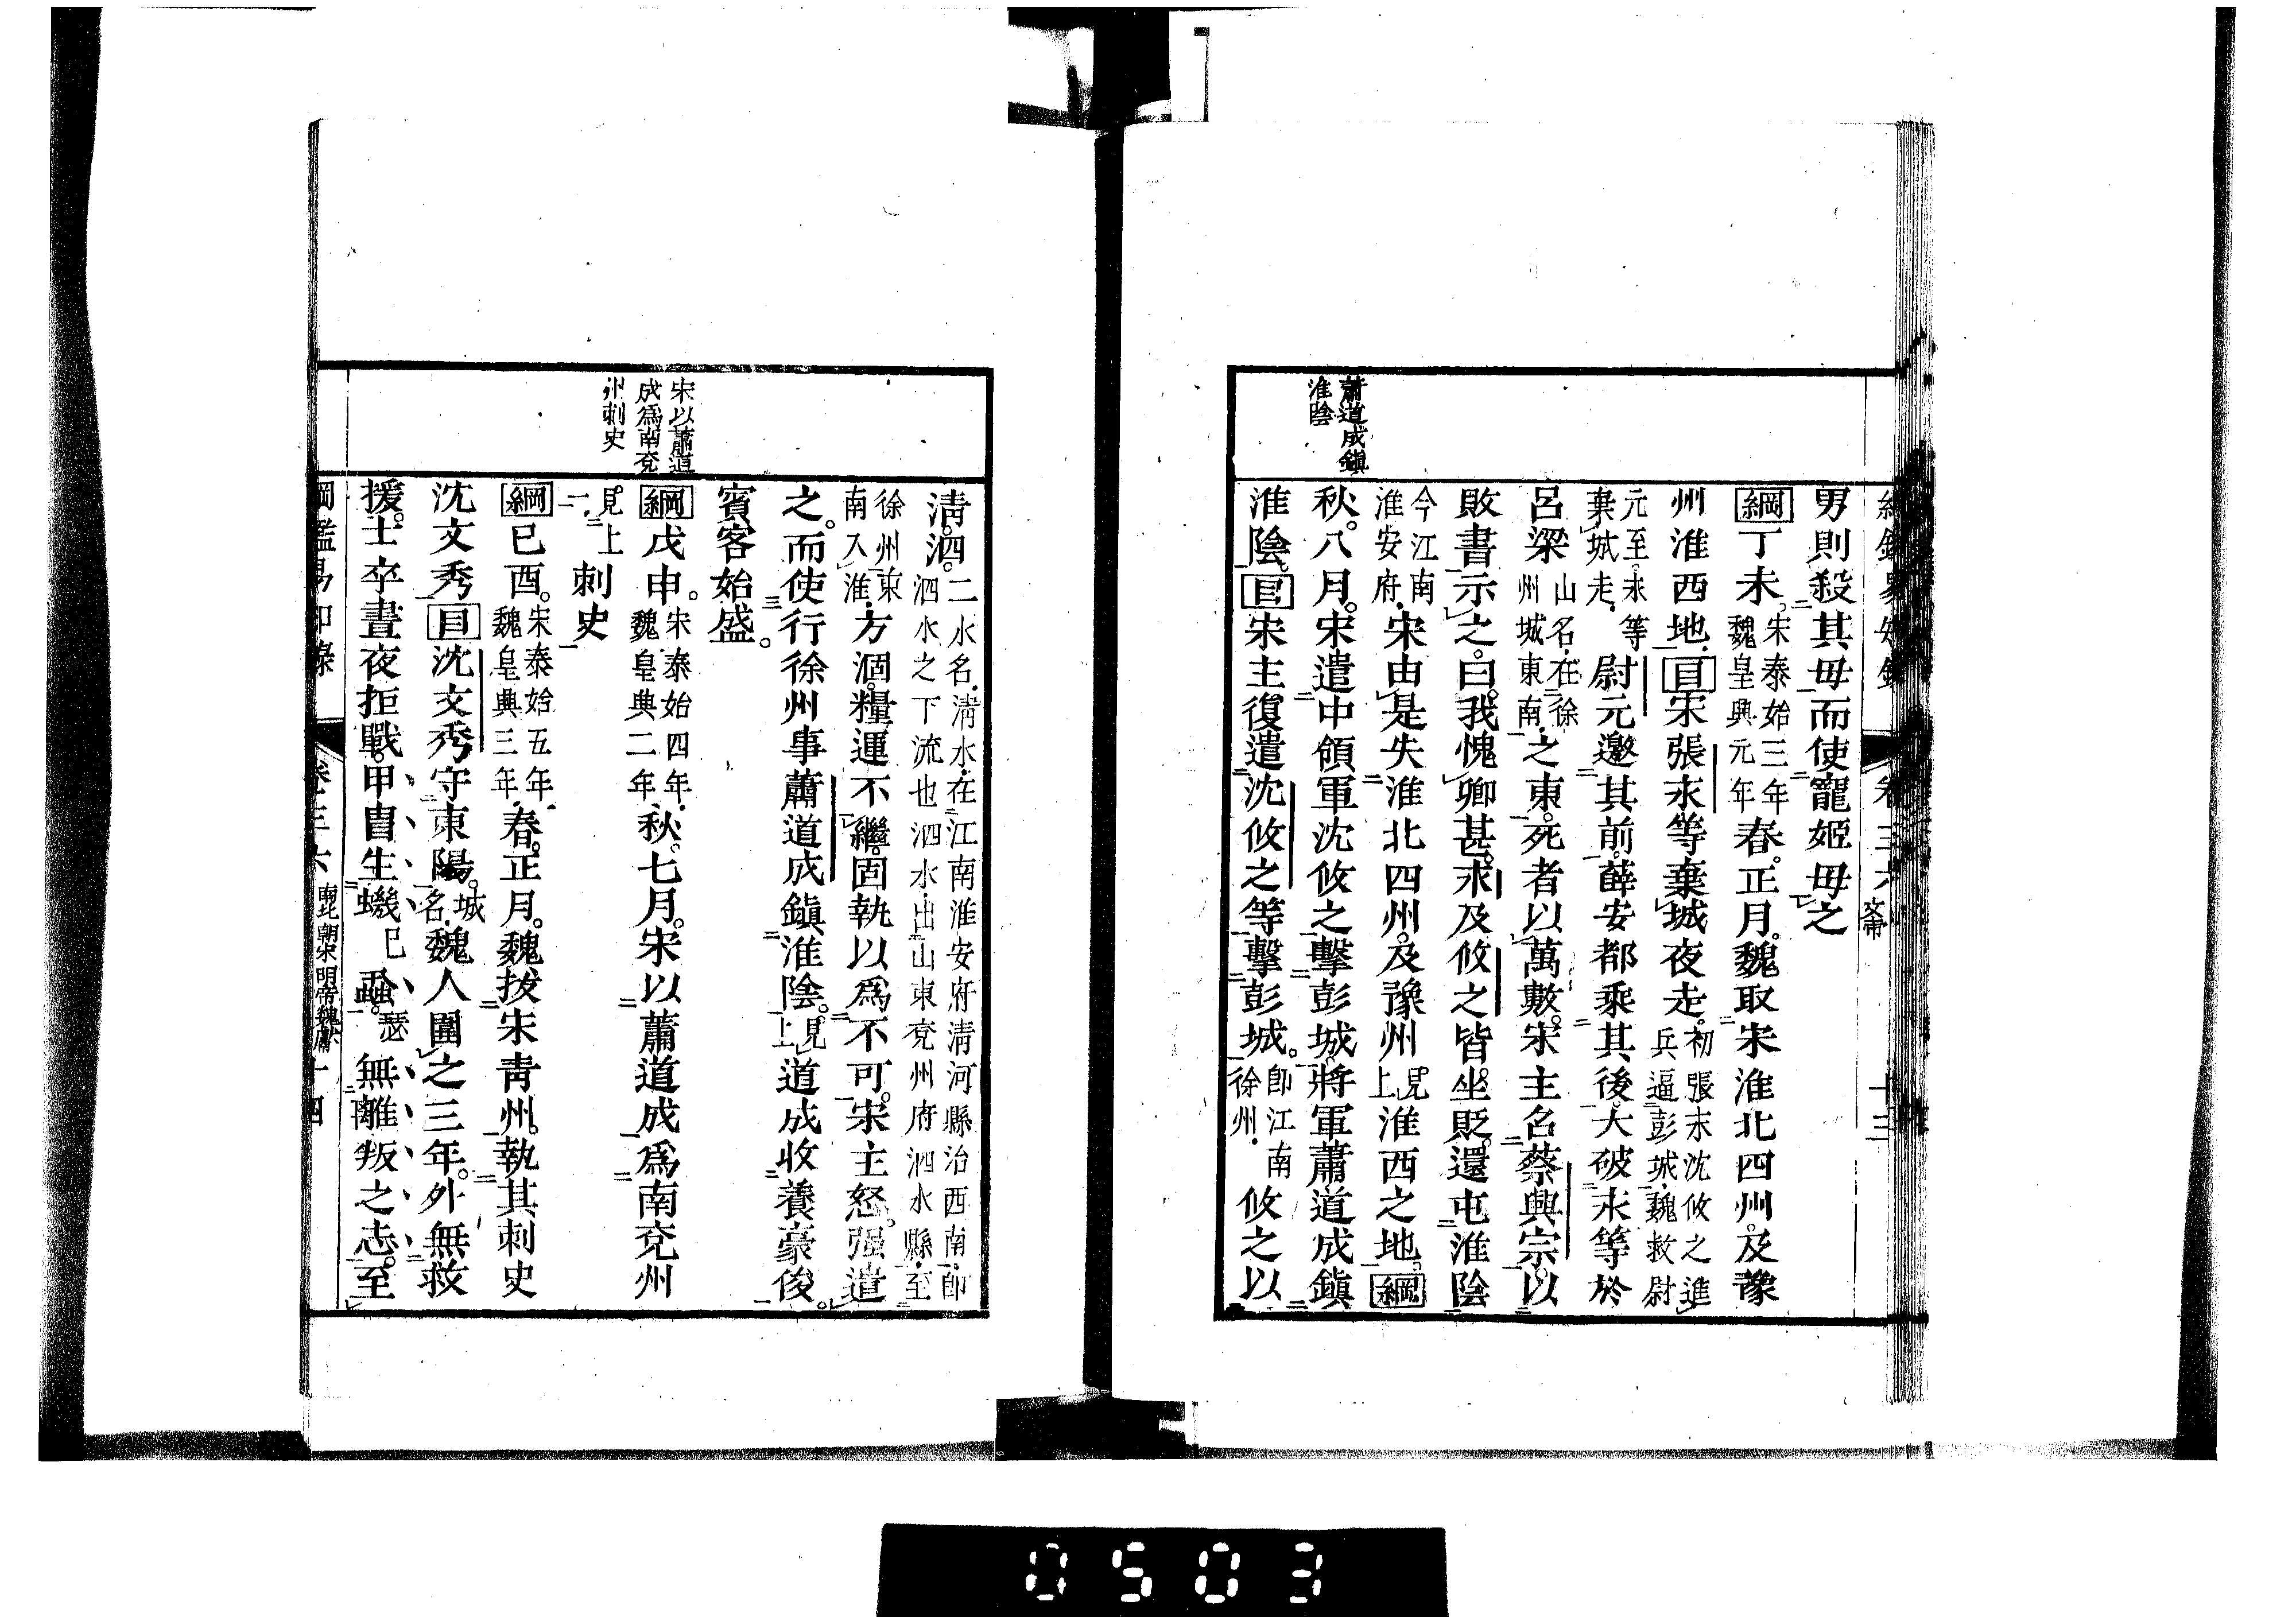 蕭道成鎮
淮陰
男則殺其母而使寵姬母之
綱丁未宋泰始三年魏皇興元年春正月魏取宋淮北四州及豫
州淮西地目宋張永等棄城夜走初張永沈攸之進兵逼彭城魏救尉
元至永等棄城走尉元邀其前薛安都乘其後大破永等於
呂梁山名在徐州城東南之東死者以萬數宋主名蔡興宗以
敗書示之曰我愧卿甚永及攸之皆坐貶還屯淮陰
今江南淮安府宋由是失淮北四州及豫州見上淮西之地綱
秋八月宋遣中領軍沈攸之擊彭城將軍蕭道成鎮
淮陰目宋主復遣沈攸之等擊彭城卽江南徐州攸之以
卷三六
文帝
十三
宋以蕭道
成爲南兗
州刺史
淸泗二水名淸水在江南淮安府淸河縣治西南卽泗水之下流也泗水出山東兗州府泗水縣至
徐州東南入淮方涸糧運不繼固執以爲不可宋主怒强遣
之而使行徐州事蕭道成鎮淮陰見上道成收養豪俊
賓客始盛
綱戊申宋泰始四年魏皇興二年秋七月宋以蕭道成爲南兗州
見上刺史
綱己酉宋泰始五年魏皇興三年春正月魏拔宋靑州執其刺史
沈文秀目沈文秀守東陽城名魏人圍之三年外無救
援士卒晝夜拒戰甲冑生蟣已蝨瑟無離叛之志至
綱鑑易知錄
卷三六
南北朝宋明帝魏獻
十四
0503